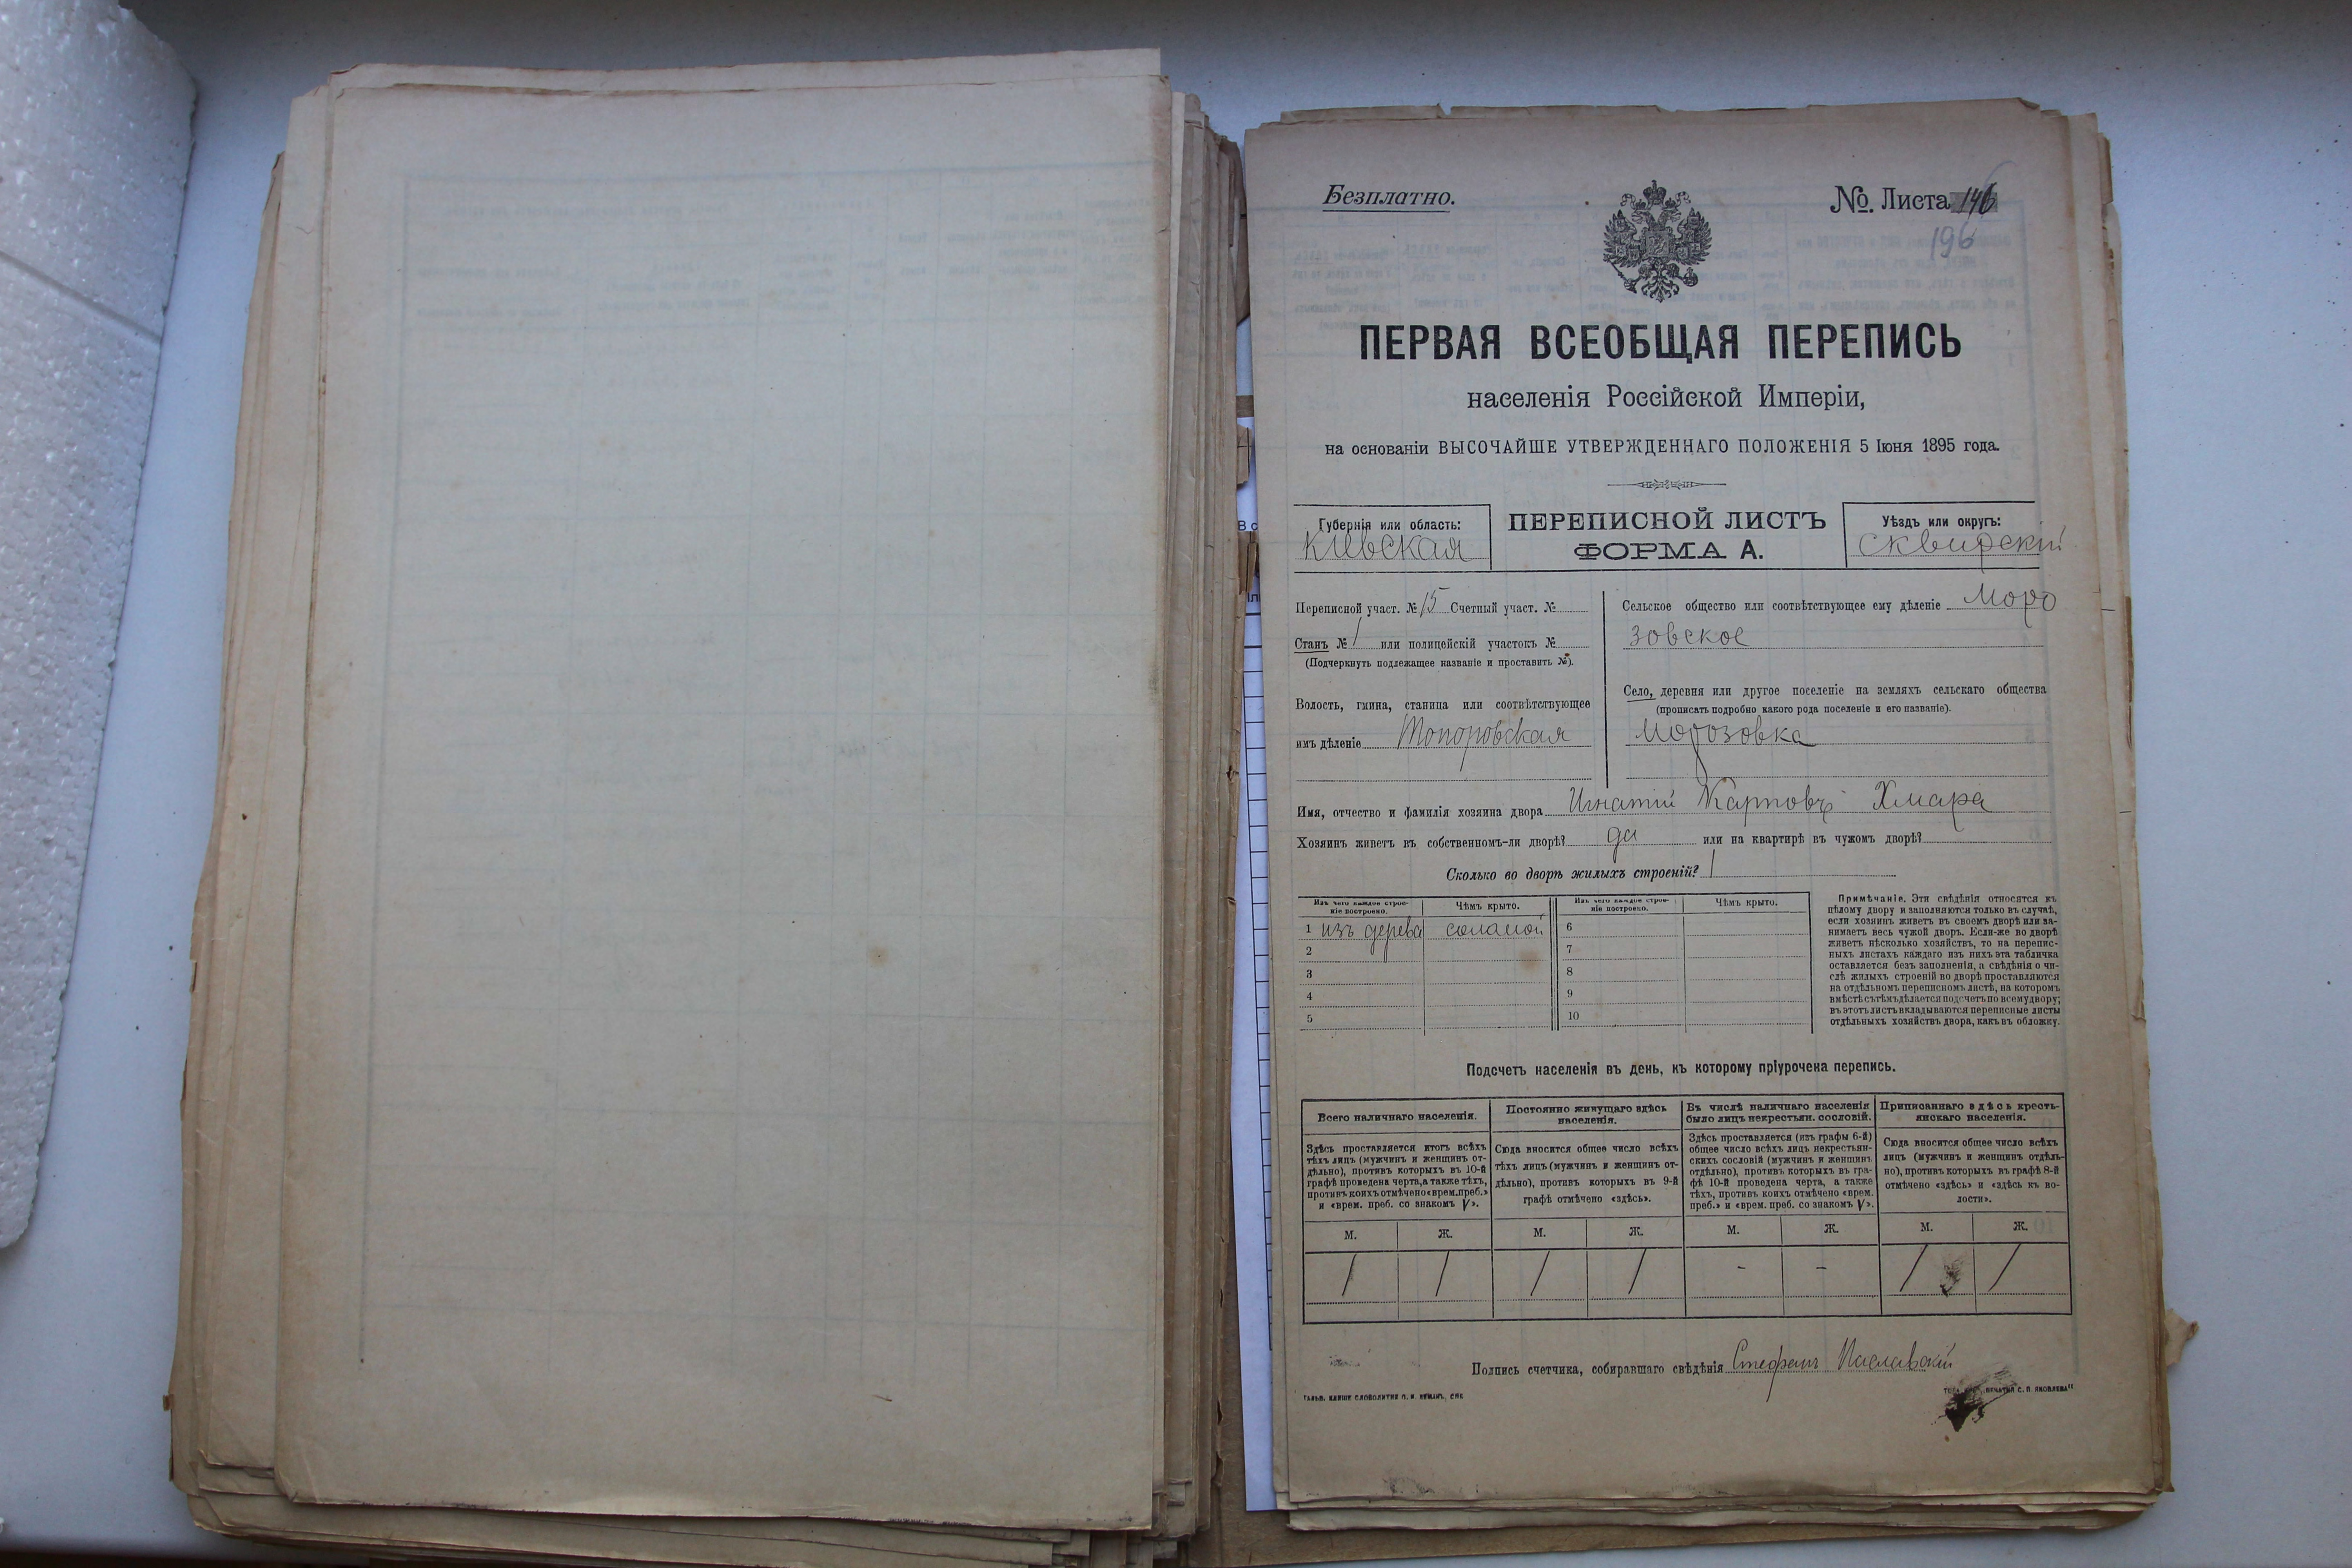 Безплатно.
№ Листа 146
196
ПЕРВАЯ ВСЕОБЩАЯ ПЕРЕПИСЬ
населенія Россійской Имперіи,
на основаніи ВЫСОЧАЙШЕ УТВЕРЖДЕННАГО ПОЛОЖЕНІЯ 5 Іюня 1895 года.
Губернія или область:
Кіевская
ПЕРЕПИСНОЙ ЛИСТЪ
ФОРМА А.
Уѣздъ или округъ:
Сквирскій
Переписной участ. № 15 Счетный участ. №
Станъ № 1 или полицейскій участокъ №
(Подчеркнуть подлежащее названіе и проставить №).
Волость, гмина, станица или соотвѣтствующее
имъ дѣленіе Топоровская
Сельское общество или соотвѣтствующее ему дѣленіе Моро
зовское
Село, деревня или другое поселеніе на земляхъ сельскаго общества
(прописать подробно какого рода поселеніе и его названіе).
Морозовка
Имя, отчество и фамилія хозяина двора Игнатій Карповъ Хмара
Хозяинъ живетъ въ собственномъ-ли дворѣ? да или на квартирѣ въ чужомъ дворѣ?
Сколько во дворѣ жилыхъ строеній? 1
Изъ чего каждое строе-
ніе построено.
Чѣмъ крыто.
Изъ чего каждое строе-
ніе построено.
Чѣмъ крыто.
1 изъ дерева соломой 6
2 7
3 8
4 9
5 10
Примѣчаніе. Эти свѣдѣнія относятся къ
цѣлому двору и заполняются только въ случаѣ,
если хозяинъ живетъ въ своемъ дворѣ или за-
нимаетъ весь чужой дворъ. Если-же во дворѣ
живетъ нѣсколько хозяйствъ, то на перепис-
ныхъ листахъ каждаго изъ нихъ эта табличка
оставляется безъ заполненія, а свѣдѣнія о чи-
слѣ жилыхъ строеній во дворѣ проставляются
на отдѣльномъ переписномъ листѣ, на которомъ
вмѣстѣ съ тѣмъ дѣлается подсчетъ по всему двору;
въ этотъ листъ вкладываются переписные листы
отдѣльныхъ хозяйствъ двора, какъ въ обложку.
Подсчетъ населенія въ день, къ которому пріурочена перепись.
Всего наличнаго населенія.
Здѣсь проставляется итогъ всѣхъ
тѣхъ лицъ (мужчинъ и женщинъ от-
дѣльно), противъ которыхъ въ 10-й
графѣ проведена черта, а также тѣхъ,
противъ коихъ отмѣчено «врем. преб.»
и «врем. преб. со знакомъ V».
Постоянно живущаго здѣсь
населенія.
Сюда вносится общее число всѣхъ
тѣхъ лицъ (мужчинъ и женщинъ от-
дѣльно), противъ которыхъ въ 9-й
графѣ отмѣчено «здѣсь».
Въ числѣ наличнаго населенія
было лицъ некрестьян. сословій.
Здѣсь проставляется (изъ графы 6-й)
общее число всѣхъ лицъ некрестьян-
скихъ сословій (мужчинъ и женщинъ
отдѣльно), противъ которыхъ въ гра-
фѣ 10-й проведена черта, а также
тѣхъ, противъ коихъ отмѣчено «врем.
преб.» и «врем. преб. со знакомъ V».
Приписаннаго здѣсь кресть-
янскаго населенія.
Сюда вносится общее число всѣхъ
лицъ (мужчинъ и женщинъ отдѣль-
но), противъ которыхъ въ графѣ 8-й
отмѣчено «здѣсь» и «здѣсь къ во-
лости».
М. Ж. М. Ж. М. Ж. М. Ж.
1 1 1 1 - - 1 1
Подпись счетчика, собиравшаго свѣдѣнія Стефанъ